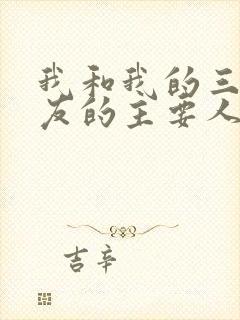 我和我的三
友的主要人
吉辛